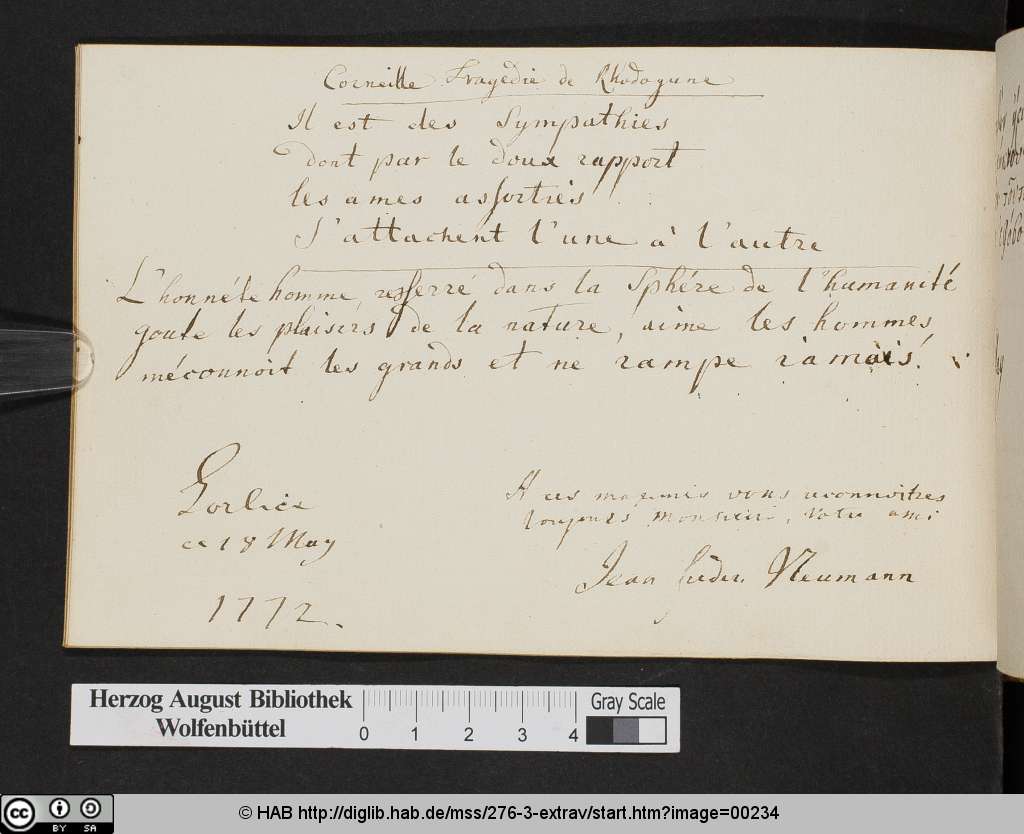 Corneille Tragédie de Rhodogune
Il est des Sympathies
dont par le doux rapport
les ames assorties
S'attachent l'une à l'autre
L'honnéte homme, resserré dans la Sphére de l'humanité
goute les plaisirs de la nature, aime les hommes,
méconnoit les grands et ne rampe jamais.
Gorlice
ce 18 May
1772.
A ces maximes vous reconnoitres
toujours Monsieur, votre ami
Jean Neumann
Herzog August Bibliothek
Wolfenbüttel
0 1 2 3 4
Gray Scale
cc BY SA
© HAB http://diglib.hab.de/mss/276-3-extrav/start.htm?image=00234